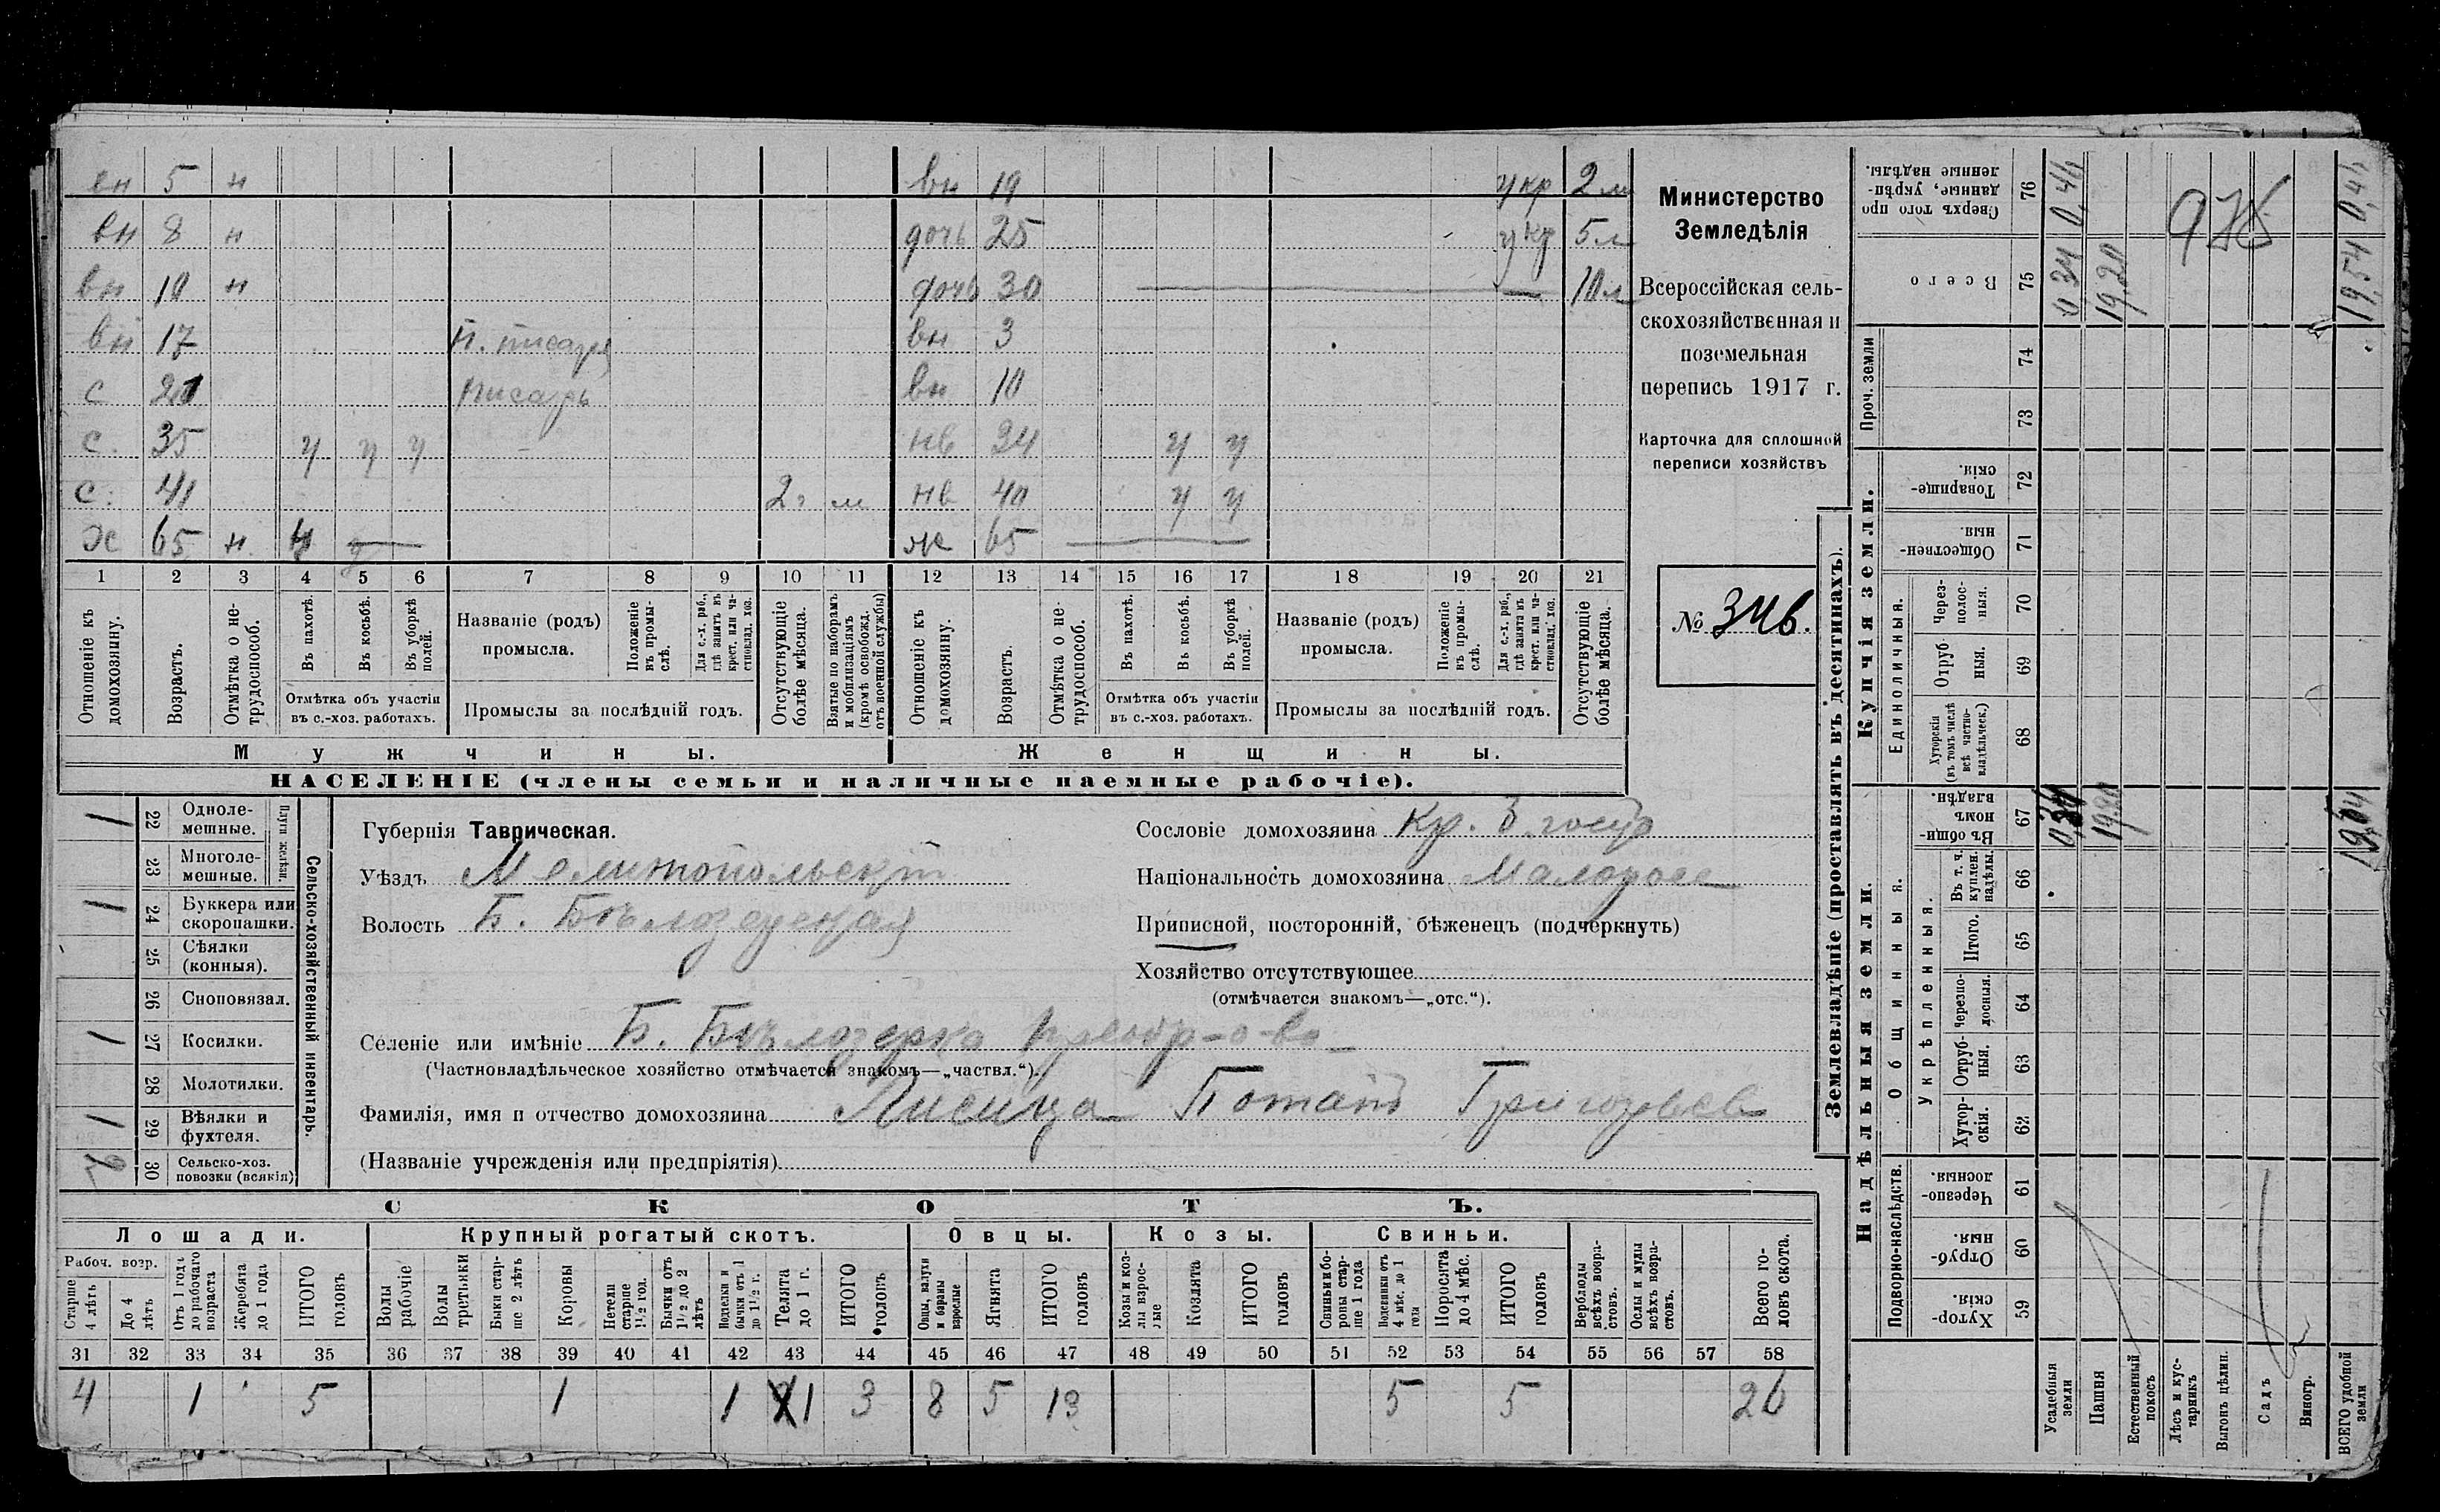 вн 5 н вн 19 укр 2 м
вн 8 н дочь 25 укр 5 л
вн 10 н дочь 30 — 10 л
вн 17 п. писаря вн 3
с 21 писарь вн 10
с. 35 у у у нв 34 у у
с. 41 2 г м нв 40 у у
х 65 н ж 65
1 2 3 4 5 6 7 8 9 10 11 12 13 14 15 16 17 18 19 20 21
Отношеніе къ домохозяину.
Возрастъ.
Отмѣтка о нетрудоспособ.
Въ пахотѣ.
Въ косьбѣ.
Въ уборкѣ полей.
Отмѣтка объ участіи
въ с.-хоз. работахъ.
Названіе (родъ)
промысла.
Положеніе въ промыслѣ.
Для с.-х. раб., гдѣ занятъ въ крест. или частновлад. хоз.
Промыслы за послѣдній годъ.
Отсутствующіе болѣе мѣсяца.
Взятые по наборамъ и мобилизаціямъ (кромѣ освобожд. отъ военной службы)
Отношеніе къ домохозяину.
Возрастъ.
Отмѣтка о нетрудоспособ.
Въ пахотѣ.
Въ косьбѣ.
Въ уборкѣ полей.
Отмѣтка объ участіи
въ с.-хоз. работахъ.
Названіе (родъ)
промысла.
Положеніе въ промыслѣ.
Для с.-х. раб., гдѣ занята въ крест. или частновлад. хоз.
Промыслы за послѣдній годъ.
Отсутствующіе болѣе мѣсяца.
Мужчины. Женщины.
НАСЕЛЕНІЕ (члены семьи и наличные наемные рабочіе).
Министерство
Земледѣлія
Всероссійская сель-
скохозяйственная и
поземельная
перепись 1917 г.
Карточка для сплошной
переписи хозяйствъ
№ 346.
Сельско-хозяйственный инвентарь.
Плуги желѣзн.
1 22 Однолемешные.
23 Многолемешные.
1 24 Буккера или скоропашки.
25 Сѣялки (конныя).
26 Сноповязал.
1 27 Косилки.
28 Молотилки.
1 29 Вѣялки и фухтеля.
2 30 Сельско-хоз. повозки (всякія)
Губернія Таврическая.
Уѣздъ Мелитопольскій
Волость Б. Бѣлозерская
Сословіе домохозяина Кр. б. госуд
Національность домохозяина Малоросс
Приписной, посторонній, бѣженецъ (подчеркнуть)
Хозяйство отсутствующее
(отмѣчается знакомъ—„отс.“).
Селеніе или имѣніе Б. Бѣлозерка
(Частновладѣльческое хозяйство отмѣчается знакомъ—„частвл.“).
Фамилія, имя и отчество домохозяина Лисица Потапъ Григорьев
(Названіе учрежденія или предпріятія)
СКОТЪ.
Лошади. Крупный рогатый скотъ. Овцы. Козы. Свиньи.
Рабоч. возр.
Старше 4 лѣтъ
До 4 лѣтъ
Отъ 1 года до рабочаго возраста
Жеребята до 1 года
ИТОГО головъ
Волы рабочіе
Волы третьяки
Быки старше 2 лѣтъ
Коровы
Нетели старше 1½ год.
Бычки отъ 1½ до 2 лѣтъ
Подтелки и бычки отъ 1 до 1½ г.
Телята до 1 г.
ИТОГО головъ
Овцы, валухи и бараны взрослые
Ягнята
ИТОГО головъ
Козы и козлы взрослые
Козлята
ИТОГО головъ
Свиньи и боровы старше 1 года
Подсвинки отъ 4 мѣс. до 1 года
Поросята до 4 мѣс.
ИТОГО головъ
Верблюды всѣхъ возрастовъ.
Ослы и мулы всѣхъ возрастовъ.
Всего головъ скота.
31 32 33 34 35 36 37 38 39 40 41 42 43 44 45 46 47 48 49 50 51 52 53 54 55 56 57 58
4 1 5 1 1 1 3 8 5 13 5 5 26
Землевладѣніе (проставлять въ десятинахъ).
Надѣльныя земли. Купчія земли. Проч. земли
Подворно-наслѣдств. Общинныя. Единоличныя.
Укрѣпленныя.
Сверхъ того проданные, укрѣпленные надѣлы. 76 0,46 0,46
Всего 75 0 34 19,20 19,54
978
74
73
Товарищескія. 72
Общественныя 71
Черезполосныя. 70
Отрубныя. 69
Хуторскія (въ томъ числѣ всѣ частновладѣльческ.) 68
Въ общинномъ владѣн. 67 0,34 19,20 19,54
Въ т. ч. куплен. надѣлы. 66
Итого. 65
Черезполосныя. 64
Отрубныя. 63
Хуторскія. 62
Черезполосныя 61
Отрубныя. 60
Хуторскія. 59
Усадебныя земли
Пашня
Естественный покосъ
Лѣсъ и кустарникъ
Выгонъ цѣлин.
Садъ
Виногр.
ВСЕГО удобной земли